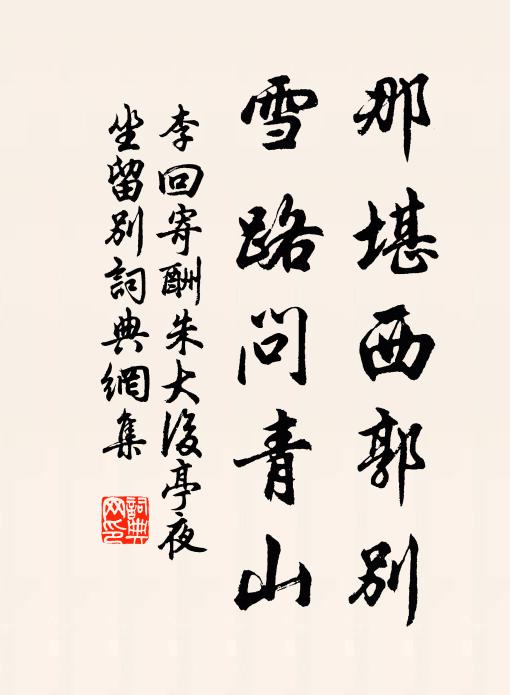 那堪西郭別
雪路問青山
李回寄酬朱大後亭夜
坐留別詞典網集
詞典
网印